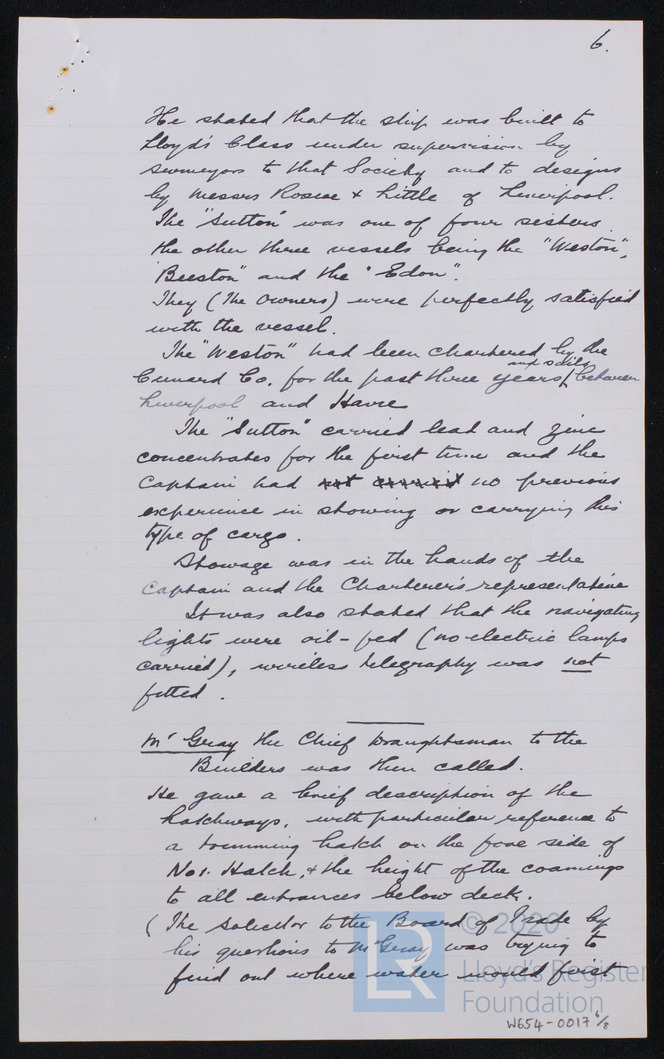 6.
He stated that the ship was built to
Lloyd's Class under supervision by
surveyors to that Society and to designs
by Messrs Roscoe & Little of Liverpool.
The "Sutton" was one of four sisters
the other three vessels being the "Weston",
"Beeston" and the "Edon".
They (the owners) were perfectly satisfied
with the vessel.
The "Weston" had been chartered by the
and sails
Cunard Co. for the past three years / between
Liverpool and Havre
The "Sutton" carried lead and zinc
concentrates for the first time and the
Captain had no previous
experience in stowing or carrying this
type of cargo.
Stowage was in the hands of the
Captain and the Charterer's representative
It was also stated that the navigating
lights were oil-fed (no electric lamps
carried), wireless telegraphy was not
fitted.
Mr Gray the Chief Draughtsman to the
Builders was then called.
He gave a brief description of the
hatchways, with particular reference to
a trimming hatch on the fore side of
No1. Hatch, & the height of the coamings
to all entrances below deck.
(The Solicitor to the Board of Trade by
his questions to Mr Gray was trying to
find out where water would first
© 2020
Lloyd's Register
Foundation
LR
W654-0017 6/8